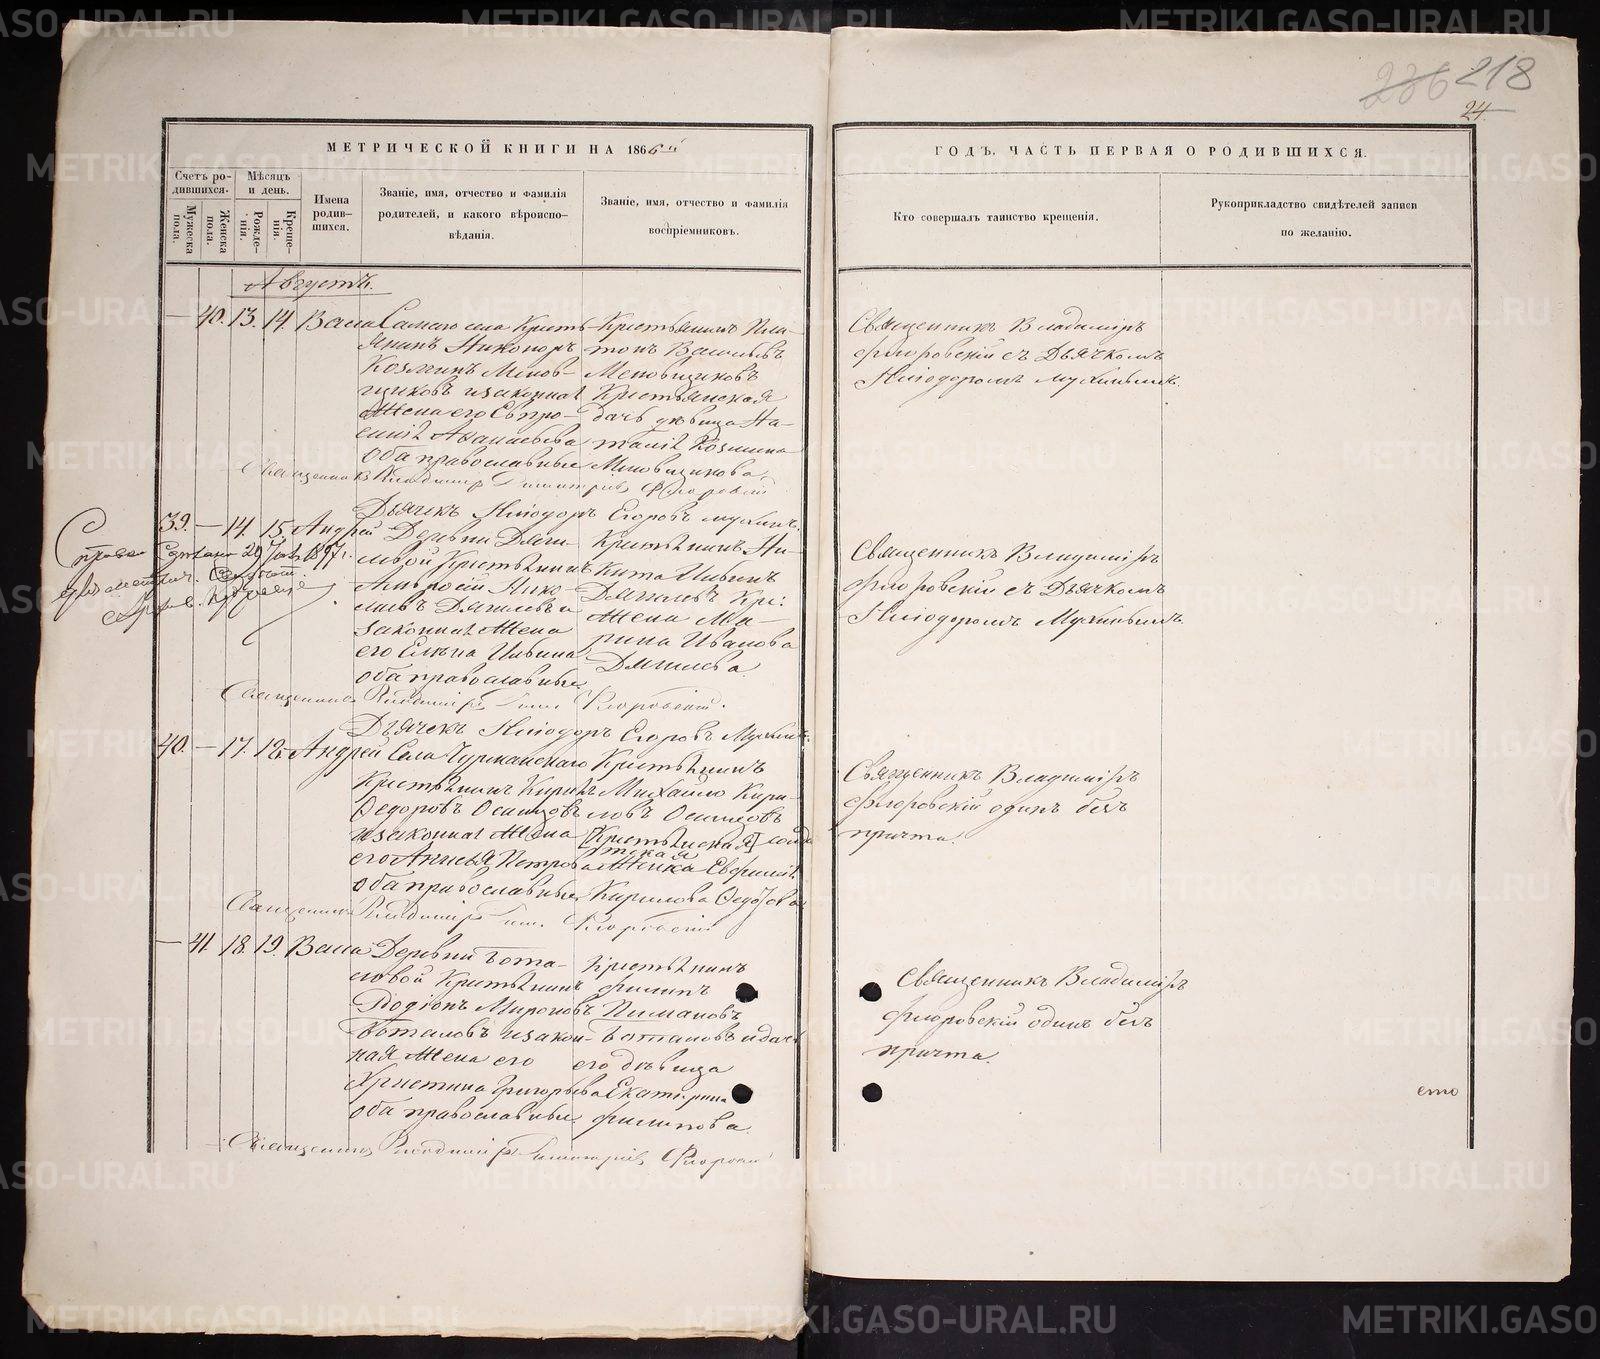 236 218
24.
МЕТРИЧЕСКОЙ КНИГИ НА 1866й
ГОДЪ. ЧАСТЬ ПЕРВАЯ О РОДИВШИХСЯ.
Счетъ родившихся.
Мужеска пола.
Женска пола.
Мѣсяцъ и день.
Рожденія.
Крещенія.
Имена родившихся.
Званіе, имя, отчество и фамилія
родителей, и какого вѣроиспо-
вѣданія.
Званіе, имя, отчество и фамилія
воспріемниковъ.
Кто совершалъ таинство крещенія.
Рукоприкладство свидѣтелей записи
по желанію.
Августъ.
— 40. 13. 14. Васса
Самаго села Кресть-
янинъ Никоноръ
Козминъ Менов-
щиковъ и законная
жена его Евпро-
ксинія
оба православные
Крестьянинъ Пла-
тонъ Васильевъ
Меновщиковъ
Крестьянская
дочь дѣвица На-
талія Козмина
Меновщикова.
Священникъ Владимiръ
Флоровскій съ Дьячкомъ
Священникъ Владимiръ Димитріевъ Флоровскій
Дьячекъ Егоровъ
39. — 14. 15. Андрей
Деревни Дяги-
левой Крестьянинъ
Амвросій Нико-
лаевъ Дягилевъ и
законная жена
его Елена Ильина
оба православные
Крестьянинъ Ни-
кита Ильинъ
Дягилевъ Кре:
жена Ма-
рина Иванова
Дягилева.
Священникъ Владимiръ
Флоровскій съ Дьячкомъ
Священникъ Владимiръ Флоровскій.
Дьячекъ Егоровъ
40. — 17. 18. Андрей
Села
Крестьянинъ Кирилъ
Федоровъ Осинцовъ
и законная жена
его Анисья Петрова
оба православные
Крестьянинъ
Михайло Кири-
ловъ Осинцовъ
[Крестьянская]
женка
Кирилова Федо
Священникъ Владимiръ
Флоровскій одинъ безъ
причта.
Священникъ Владимiръ Флоровскій
— 41. 18. 19. Васса
Деревни Бота-
ловой Крестьянинъ
Родіонъ Мироновъ
Боталовъ и закон-
ная жена его
Христина Григорьева
оба православные
Крестьянинъ
Филипъ
Пимановъ
Боталовъ и дочь
его дѣвица
Екатерина
Филипова.
Священникъ Владимiръ
Флоровскій одинъ безъ
причта.
Священникъ Владимiръ Димитріевъ Флоровскій
METRIKI.GASO-URAL.RU